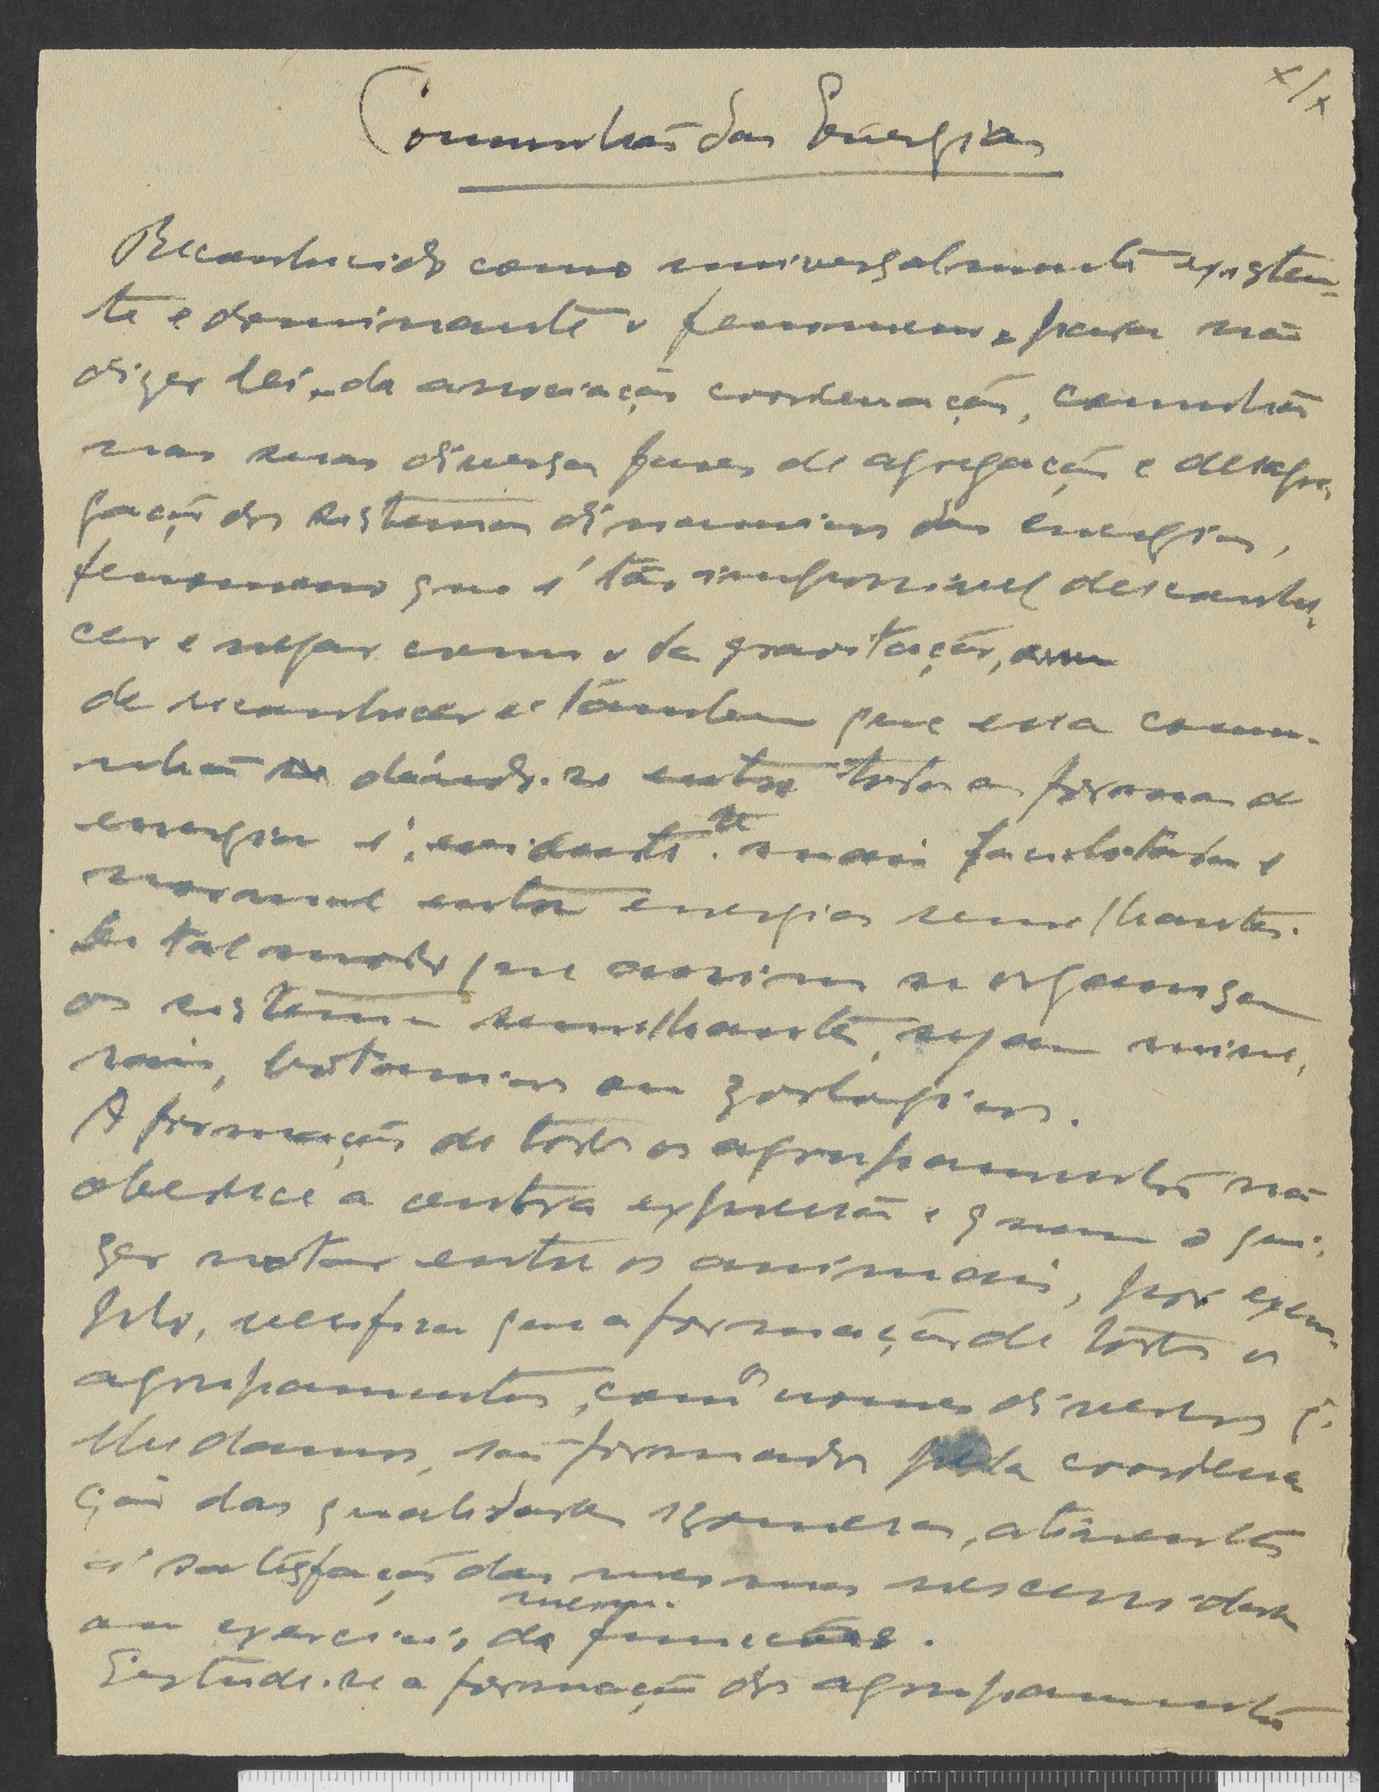 x/x
Comunhão das Energias
Reconhecido como universalmente existen-
te e dominante o fenomeno, para não
dizer lei, da associação coordenação, comunhão
nas suas diversas fases de agregação e desagre-
gação dos sistemas dinamicos das energias,
fenomeno que é tão impossivel desconhe-
cer e negar como o da gravitação,
de reconhecer é tambem que essa comu-
nhão dando-se entre todas as formas de
energia é, evidente.te mais facilitada e
normal entre energias semelhantes.
De tal modo que assim se organizam
os sistemas semelhantes, sejam mine-
rais, botanicos ou zoologicos.
A formação de todos os agrupamentos não
obedece a outra expressão e quem o qui-
zer notar entre os animais, por exem-
plo, verifica que a formação de todos os
agrupamentos, com os nomes diversos q.
lhe damos, são formados pela coordena
ção das qualidades isomeras, atinentes
á satisfação das mesmas necessidades
ou exercicio da mesm. funções.
Estude-se a formação dos agrupamentos